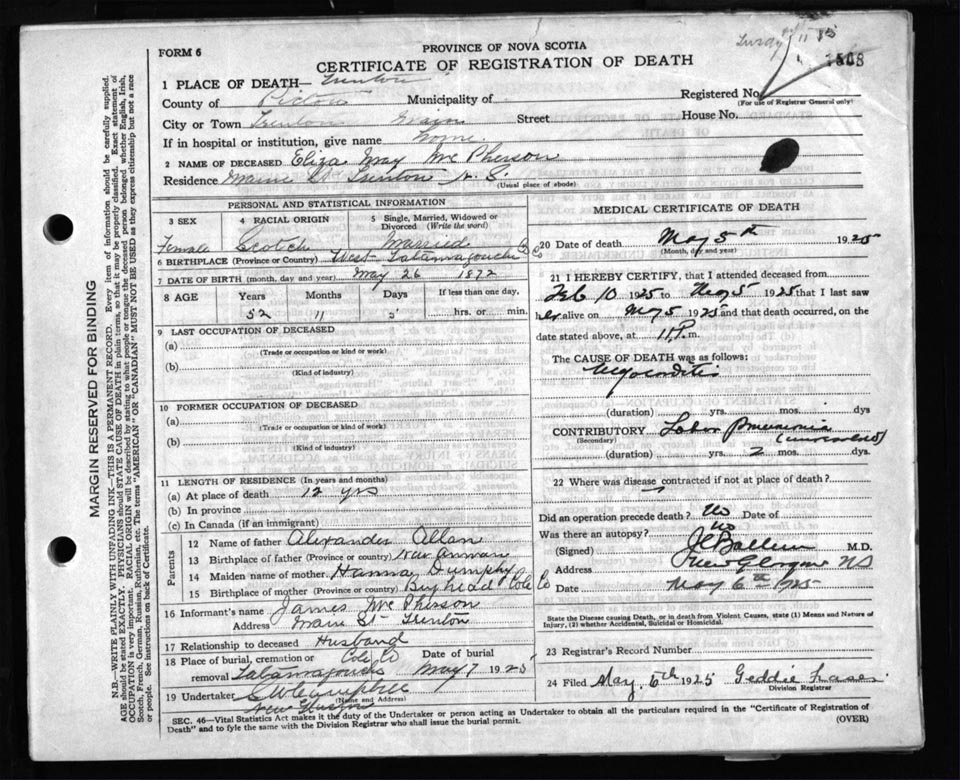 FORM 6
PROVINCE OF NOVA SCOTIA
CERTIFICATE OF REGISTRATION OF DEATH
1508
1 PLACE OF DEATH— Trenton
Registered No.
(For use of Registrar General only)
County of Pictou Municipality of
City or Town Trenton Street House No.
If in hospital or institution, give name Home
2 NAME OF DECEASED Eliza May McPherson
Residence Main St Trenton N.S.
(Usual place of abode)
PERSONAL AND STATISTICAL INFORMATION
3 SEX 4 RACIAL ORIGIN 5 Single, Married, Widowed or Divorced (Write the word)
Female Scotch Married
6 BIRTHPLACE (Province or Country) West Tatamagouche Co
7 DATE OF BIRTH (month, day and year) May 26 1872
8 AGE Years Months Days If less than one day,
52 11 hrs. or min.
9 LAST OCCUPATION OF DECEASED
(a)
(Trade or occupation or kind or work)
(b)
(Kind of industry)
10 FORMER OCCUPATION OF DECEASED
(a)
(Trade or occupation or kind of work)
(b)
(Kind of industry)
11 LENGTH OF RESIDENCE (In years and months)
(a) At place of death 12 yrs
(b) In province
(c) In Canada (if an immigrant)
Parents
12 Name of father Alexander Allan
13 Birthplace of father (Province or country) New Annan
14 Maiden name of mother Hanna Dumphy
15 Birthplace of mother (Province or country) Byhead Cole Co
16 Informant's name James McPherson
Address Main St Trenton
17 Relationship to deceased Husband
18 Place of burial, cremation or removal Tatamagouche Col. Co Date of burial May 7 1925
19 Undertaker
(Name and Address)
MEDICAL CERTIFICATE OF DEATH
20 Date of death May 5th 1925
(Month, day and year)
21 I HEREBY CERTIFY, that I attended deceased from
Feb 10 1925 to May 5 1925 that I last saw
her alive on May 5 1925 and that death occurred, on the
date stated above, at 11 P. m.
The CAUSE OF DEATH was as follows:
Myocarditis
(duration) yrs. mos. dys
CONTRIBUTORY Lobar Pneumonia
(Secondary) (unresolved)
(duration) yrs. 2 mos. dys.
22 Where was disease contracted if not at place of death?
Did an operation precede death? No Date of
Was there an autopsy? No
(Signed) M.D.
Address New Glasgow NS
Date May 6th 1925
State the Disease causing Death, or in death from Violent Causes, state (1) Means and Nature of Injury, (2) whether Accidental, Suicidal or Homicidal.
23 Registrar's Record Number
24 Filed May 6th 1925 Geddie Fraser
Division Registrar
SEC. 46—Vital Statistics Act makes it the duty of the Undertaker or person acting as Undertaker to obtain all the particulars required in the "Certificate of Registration of
Death" and to fyle the same with the Division Registrar who shall issue the burial permit. (OVER)
MARGIN RESERVED FOR BINDING
N.B.—WRITE PLAINLY WITH UNFADING INK—THIS IS A PERMANENT RECORD. Every item of information should be carefully supplied.
AGE should be stated EXACTLY. PHYSICIANS should STATE CAUSE OF DEATH in plain terms, so that it may be properly classified. Exact statement of
OCCUPATION is very important. RACIAL ORIGIN will be described by stating to what people or tongue the deceased person belonged whether English, Irish,
Scotch, French, German, Russian, Ruthenian, etc. The terms "AMERICAN" OR "CANADIAN" MUST NOT BE USED as they express citizenship but not a race
or people. See instructions on back of Certificate.